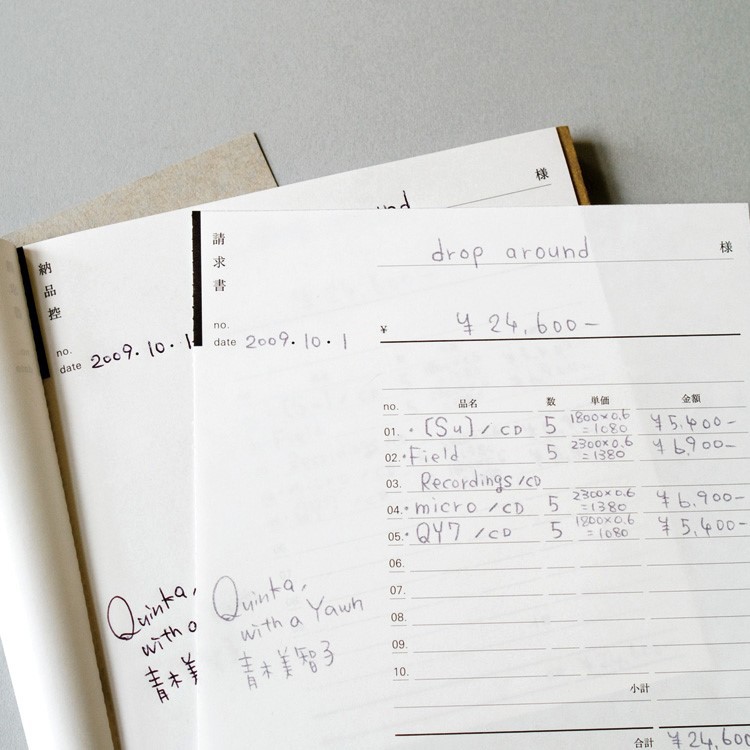 様
納品控
no.
date 2009.10.1
Quinka,
with a
青木美
請求書
drop around 様
no.
date 2009.10.1
¥ ¥24,600-
no. 品名 数 単価 金額
01. ・[Su]/CD 5 1800×0.6=1080 ¥5,400-
02. ・Field 5 2300×0.6=1380 ¥6,900-
03. Recordings/CD
04. ・micro/CD 5 2300×0.6=1380 ¥6,900-
05. ・QY7/CD 5 1800×0.6=1080 ¥5,400-
06.
07.
08.
09.
10.
Quinka,
with a Yawn
青木美智子
小計
合計 ¥24,600